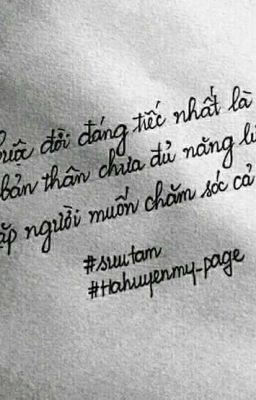 đời đáng tiếc nhất là
bản thân chưa đủ năng
người muốn chăm sóc cả
#sưutam
#Hahuyenmy-page